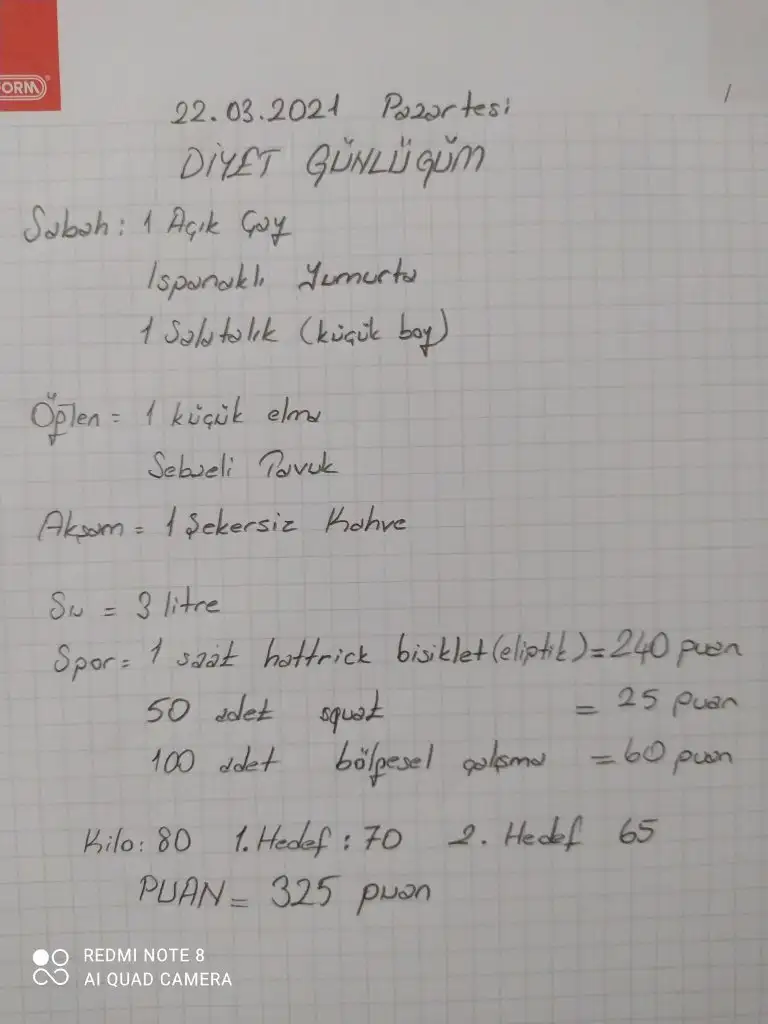 ORM
22.03.2021 Pazartesi
DİYET GÜNLÜĞÜM
Sabah: 1 Açık Çay
Ispanaklı Yumurta
1 Salatalık (küçük boy)
Öğlen = 1 küçük elma
Sebzeli Tavuk
Akşam = 1 Şekersiz Kahve
Su = 3 litre
Spor = 1 saat hattrick bisiklet (eliptik) = 240 puan
50 adet squat = 25 puan
100 adet bölgesel çalışma = 60 puan
Kilo: 80 1. Hedef: 70 2. Hedef 65
PUAN = 325 puan
REDMI NOTE 8
AI QUAD CAMERA